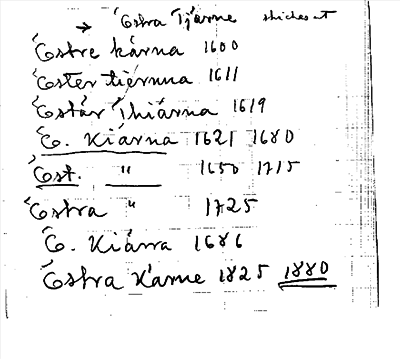 → Östra Tjärne
Östre kärna 1600
Öster tiernna 1611
Östär Thiärna 1619
Ö. Kiärna 1621 1680
Öst. " 1650 1715
Östra " 1725
Ö. Kiärra 1686
Östra Kärne 1825 1880